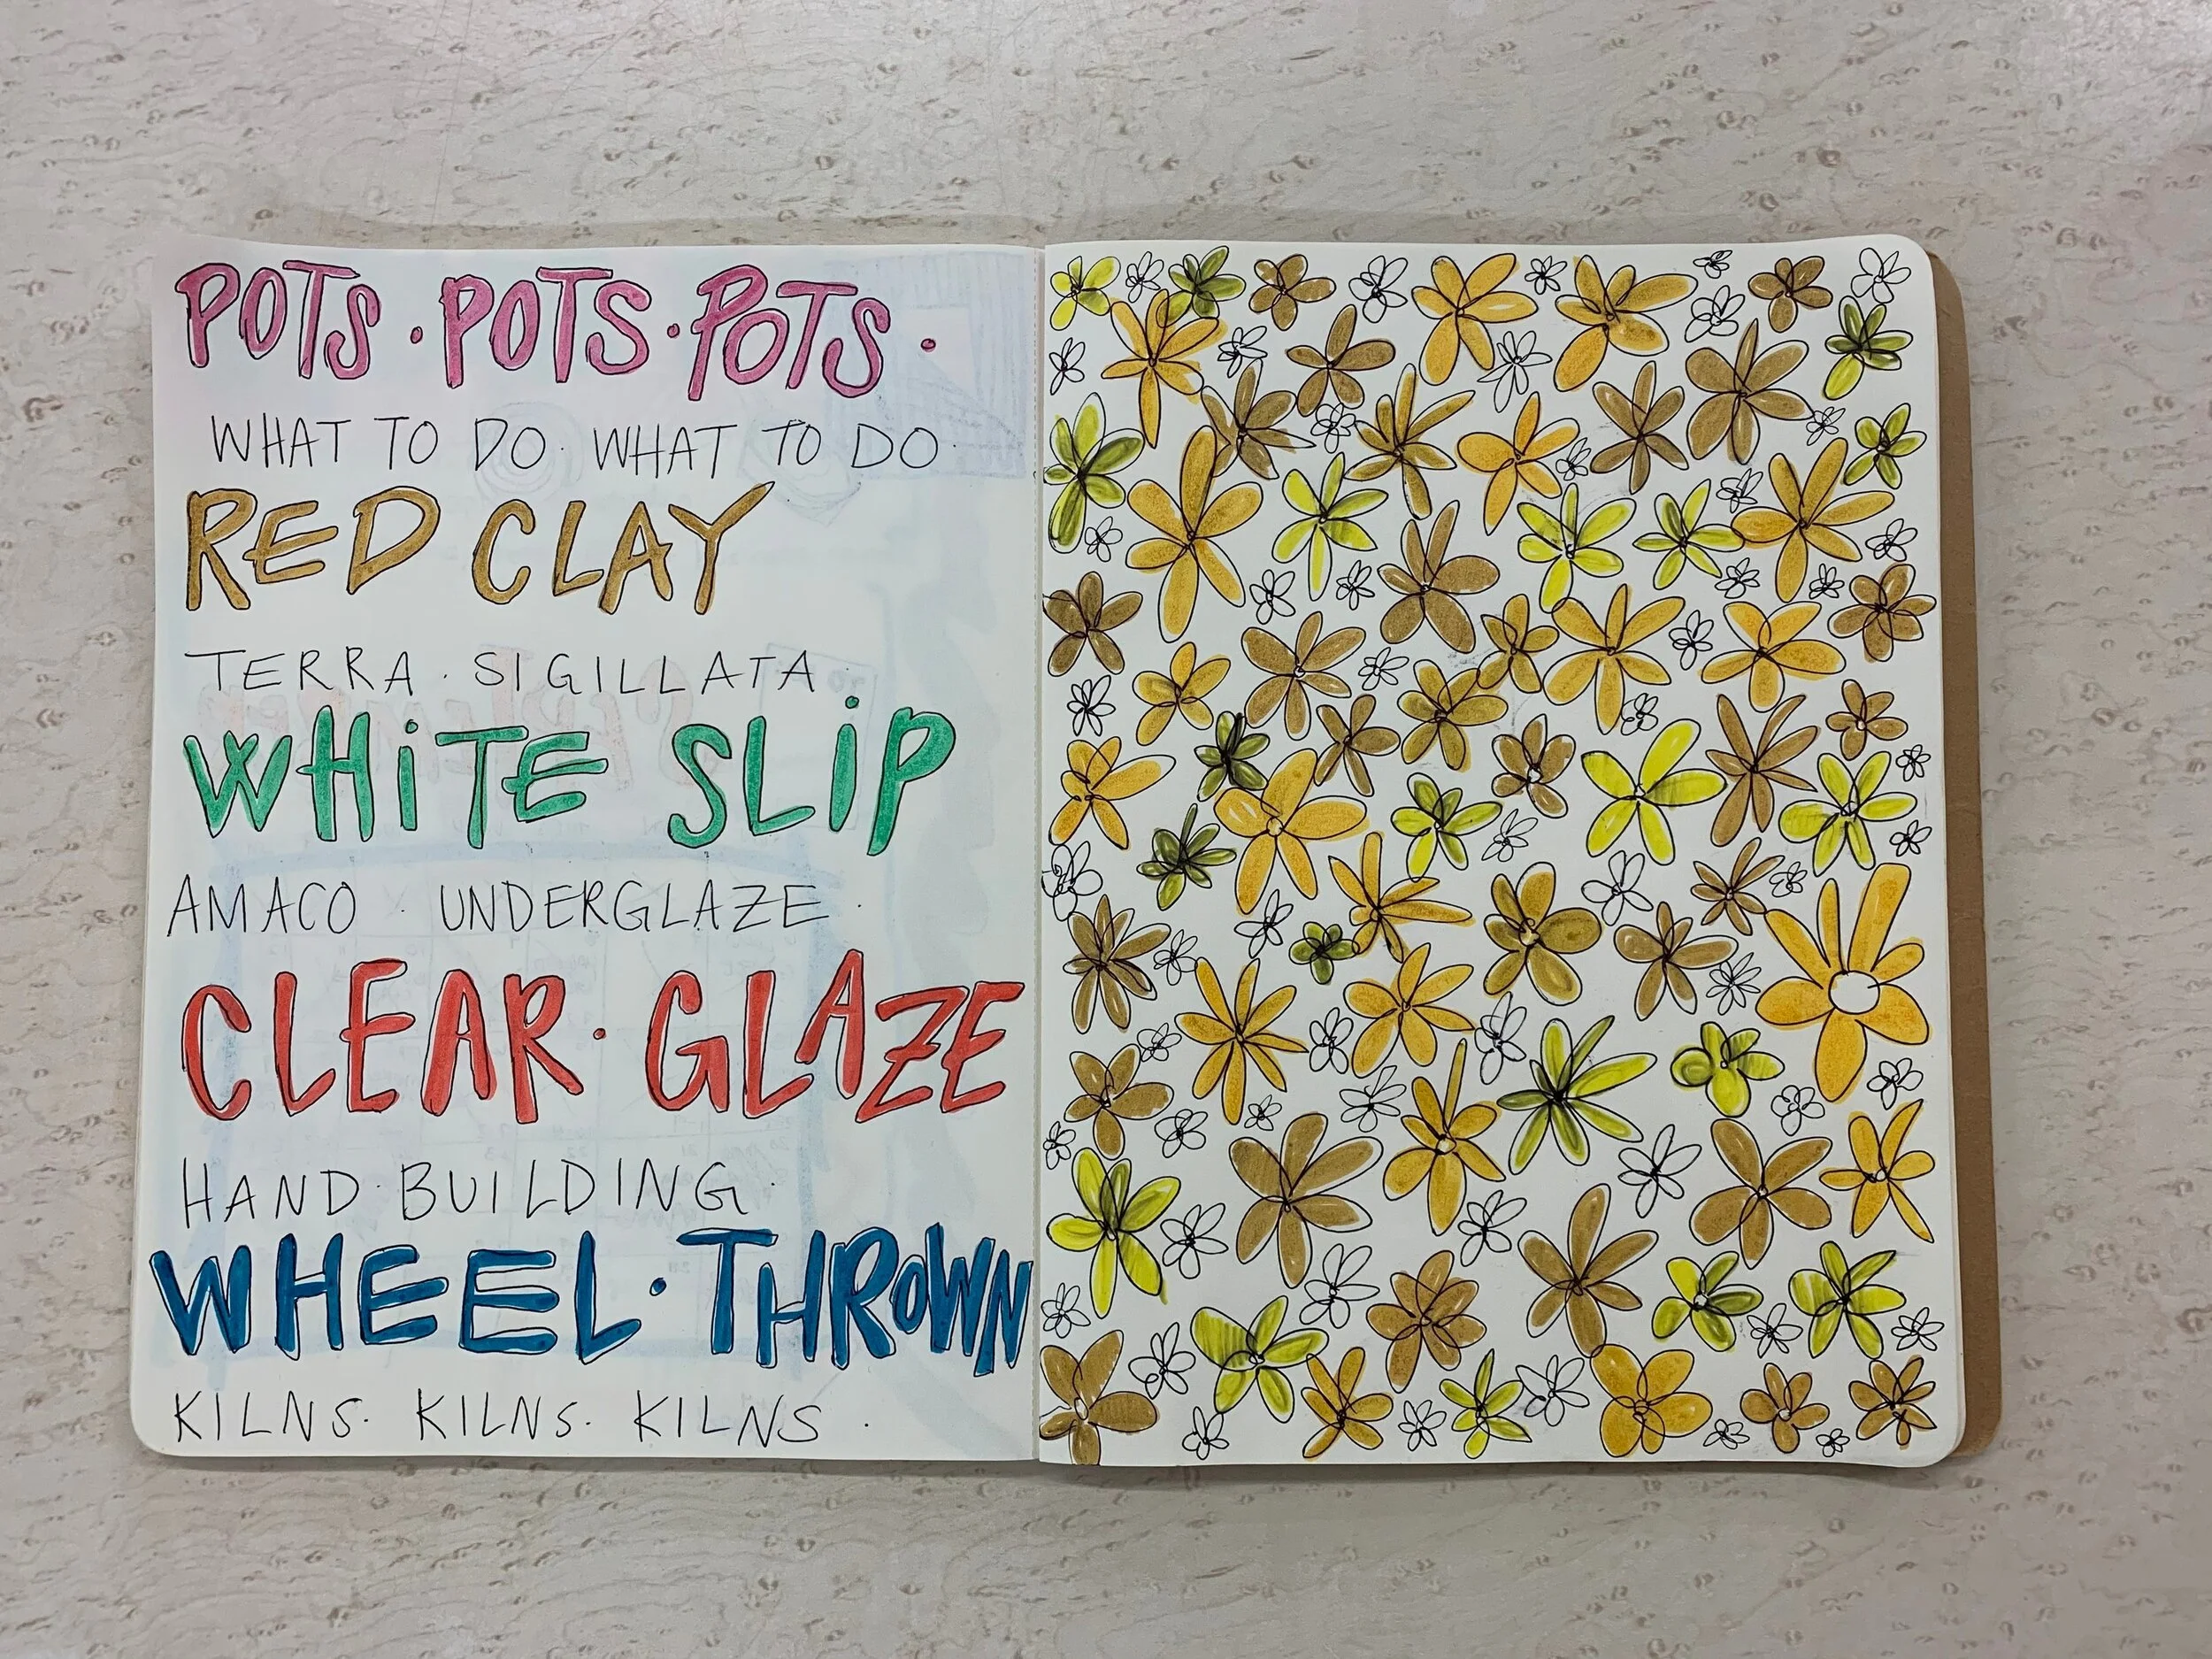 POTS · POTS · POTS ·
WHAT TO DO · WHAT TO DO ·
RED CLAY
TERRA · SIGILLATA ·
WHiTE SLiP
AMACO · UNDERGLAZE ·
CLEAR · GLAZE
HAND · BUILDING ·
WHEEL · THROWN
KILNS · KILNS · KILNS ·